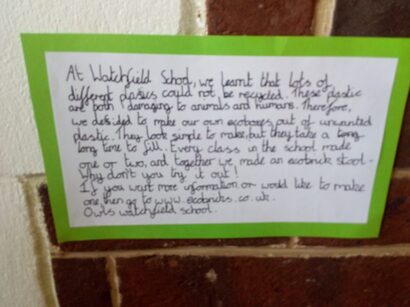 At Watchfield School, we learnt that lots of
different plasics could not be recycled. These plastic
are both damaging to animals and humans. Therefore,
we desided to make our own ecoboxes out of unwanted
plastic. They look simple to make, but they take a long
long time to fill. Every class in the school made
one or two, and together we made an ecobrick stool.
Why don't you try it out!
If you want more information or would like to make
one, then go to www.ecobricks.co.uk.
Owls watchfield school.